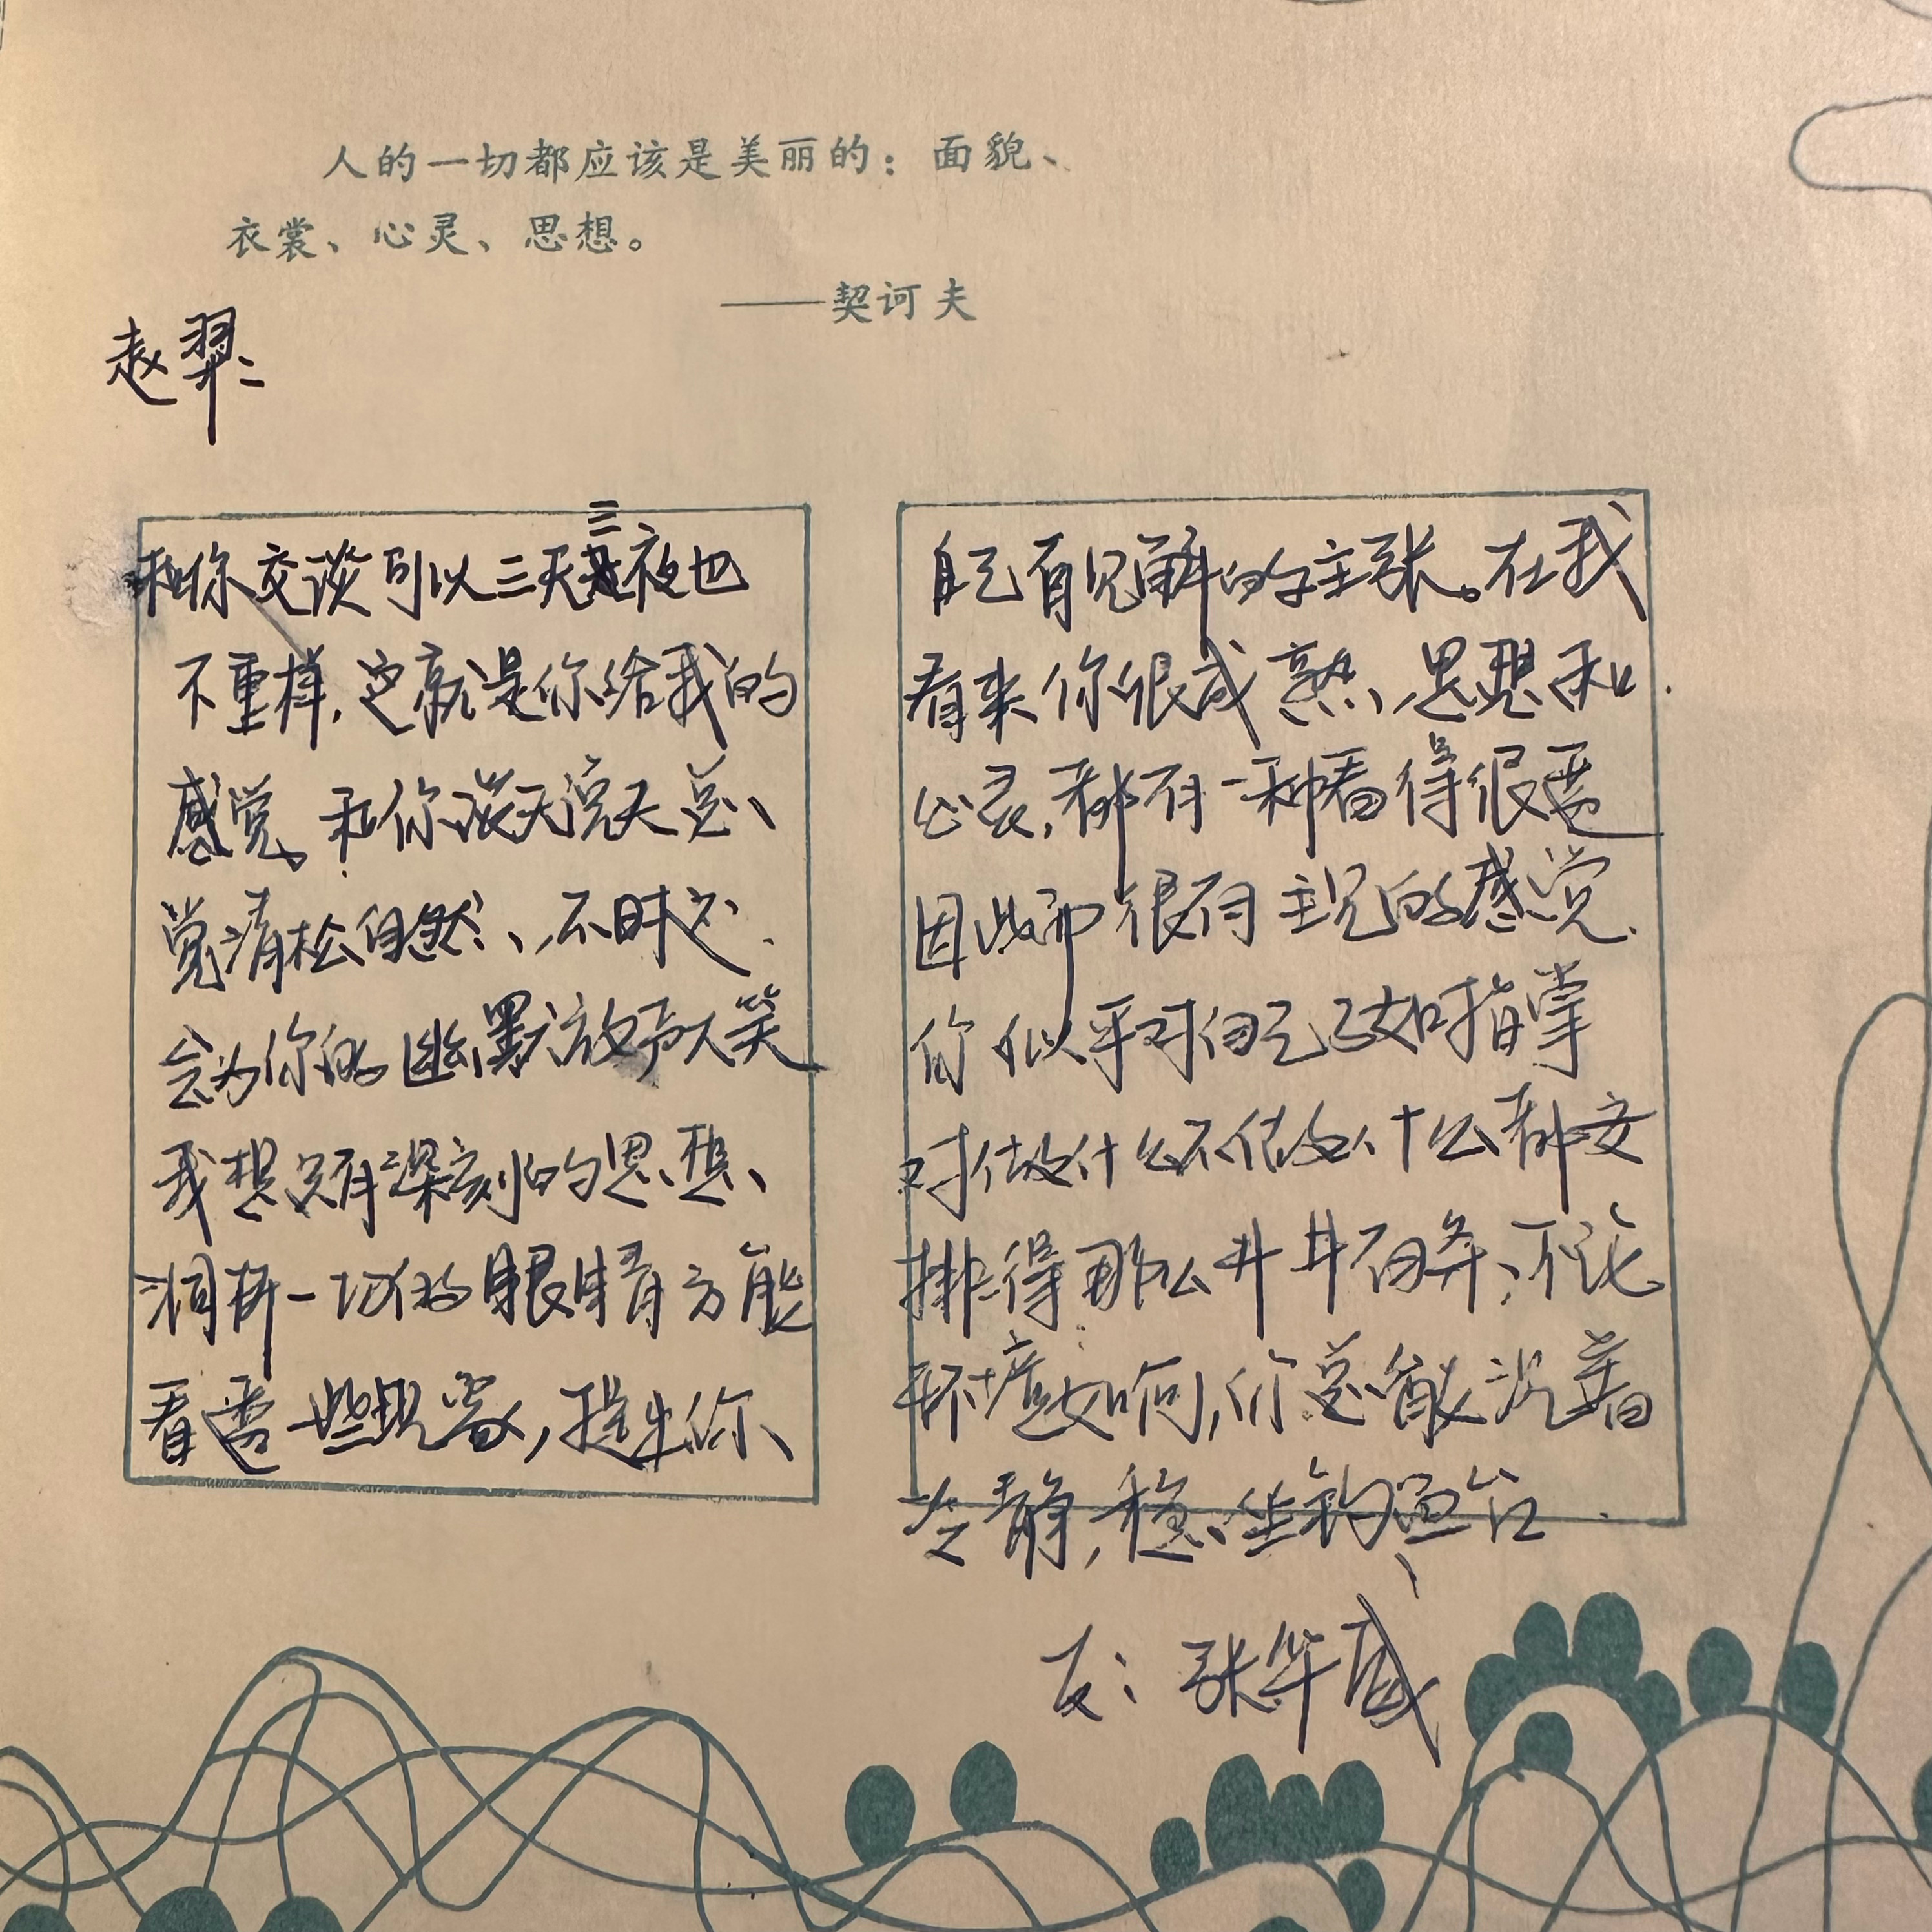 人的一切都应该是美丽的：面貌、
衣裳、心灵、思想。
——契诃夫
赵羿：
和你交谈可以三天三夜也
不重样，这就是你给我的
感觉。和你谈天说天总、
觉清松自然、，不时也
会为你的幽默放声大笑
我想只有深刻的思想、
洞析一切的眼睛方能
看透一些现象，提出你、
自己有见解的主张。在我
看来你很成熟、思想和
心灵，都有一种看得很透
因此而很有主见的感觉.
你似乎对自己了如指掌
对做什么不做什么都安
排得那么井井有条，不论
环境如何，你总能沉着
冷静，稳坐钓鱼台.
友：张华威